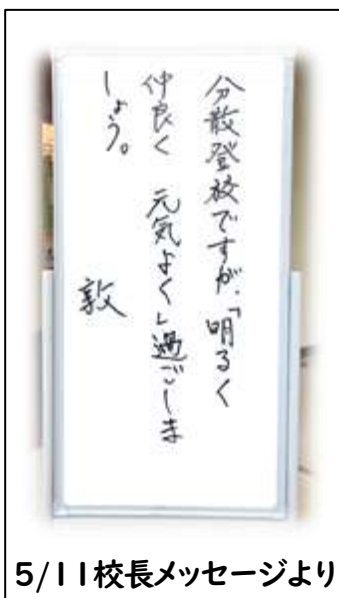 分散登校ですが、「明るく
仲良く 元気よく」過ごしま
しょう。
敦
5/11校長メッセージより